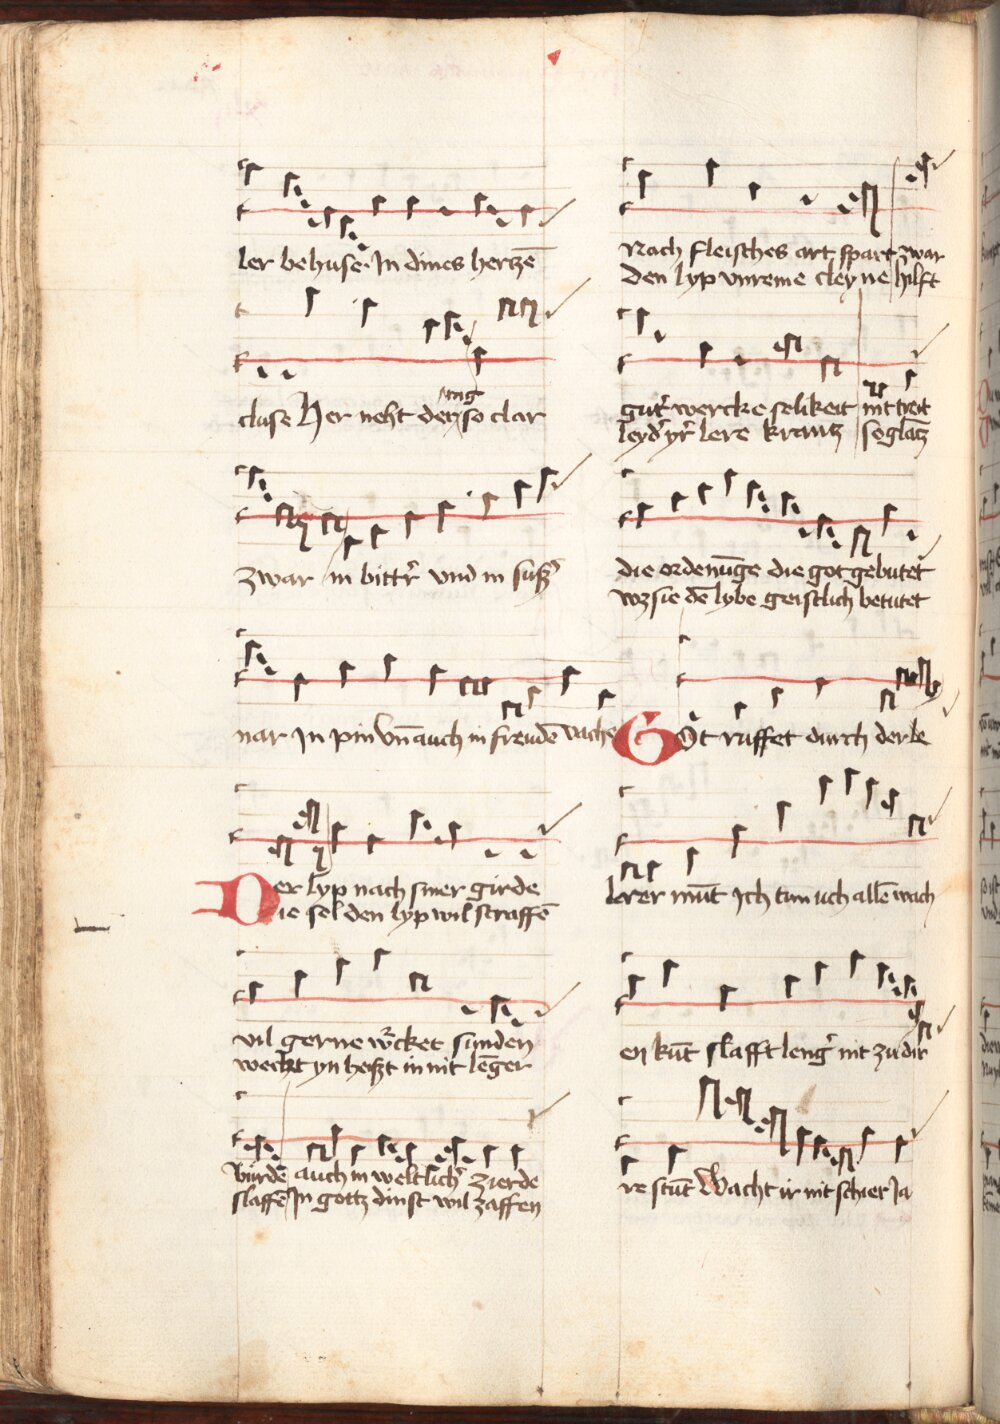 ler behuse. In dines hertzē
cluse Her neht den so clar
zwar in bittʼr vnd in suszʼ
nar In pin vn̄ auch in freudē wache
Der lyp nach siner girde
Die sel den lyp wil straffē
vil gerne wʼcket sunden
wecket yn heiszt in nit lēger
burdē auch in weltlichʼ zierde
slaffē In gottz dinst wil zaffen
Nach fleisches art spart zwar
den lyp vnreine cleyne hilft
gutʼ wercke selikeit nit treit
leydʼ yrʼ lere krantz so glātz
die ordenūge die got gebutet
wz sie dē lybe geistlich betutet
Got ruffet durch der le
lerer mūt Ich tun uch allē wach
en kūt slafft lengʼ nit zu dir
re stūt Wacht ir nit schier Ja